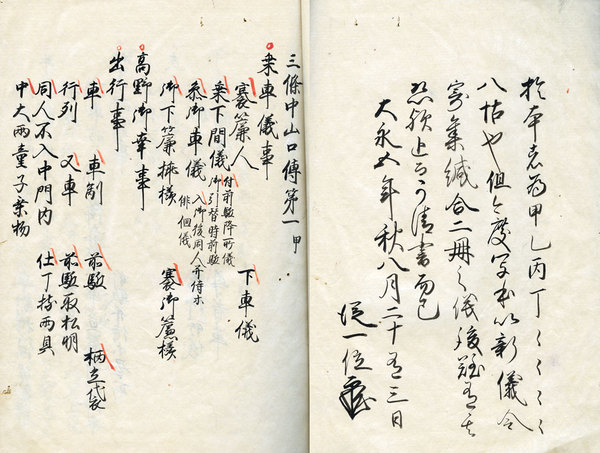 於本者為甲乙丙丁〻〻〻〻
八帖也但今度写本以新儀令
寄集緘合二冊之儀後難有其
恐 上 可清書而已
大永五年秋八月二十有三日
従一位
三條中山口傳第一甲
乗車儀事
褰簾人
乗下間儀 付前駈降所儀 下車儀
御引替時前駈
乗御車儀 入御後同人并侍等
徘徊儀
御下簾 様 褰御簾様
高野御幸事
出行事
車 車副 前駈 柄立袋
行列 又車 前駈取松明
同人不入中門内 仕丁持雨具
中大両童子乗物